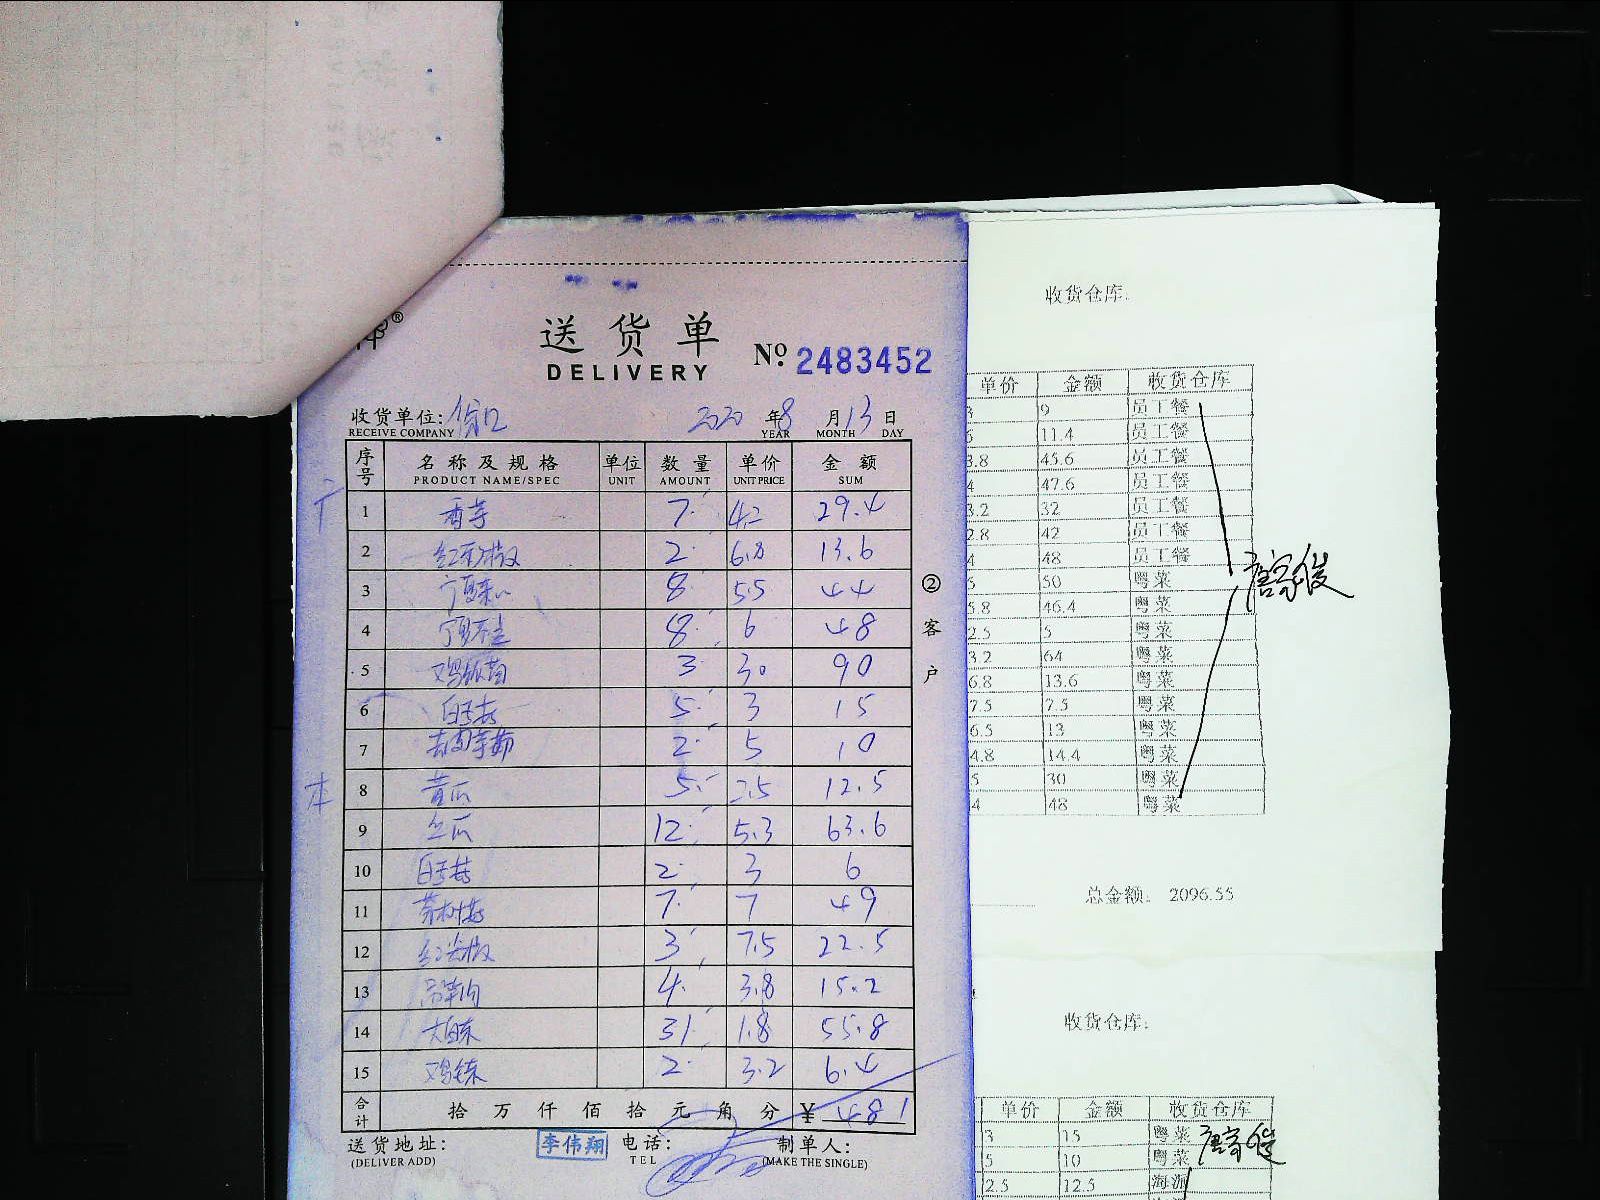 送货单
DELIVERY
No. 2483452
收货单位:
RECEIVE COMPANY
2020 年 8 月 13 日
YEAR MONTH DAY
序号 名称及规格 单位 数量 单价 金额
PRODUCT NAME/SPEC UNIT AMOUNT UNIT PRICE SUM
1 香芋 7 4.2 29.4
2 2 6.8 13.6
3 8 5.5 44
4 8 6 48
5 3 30 90
6 5 3 15
7 2 5 10
8 黄瓜 5 2.5 12.5
9 丝瓜 12 5.3 63.6
10 2 3 6
11 7 7 49
12 红尖椒 3 7.5 22.5
13 4 3.8 15.2
14 31 1.8 55.8
15 2 3.2 6.4
合计 拾 万 仟 佰 拾 元 角 分 ¥ 481
送货地址: 李伟翔 电话: 制单人:
(DELIVER ADD) TEL (MAKE THE SINGLE)
② 客户
收货仓库:
单价 金额 收货仓库
9 员工餐
11.4 员工餐
3.8 45.6 员工餐
4 47.6 员工餐
3.2 32 员工餐
2.8 42 员工餐
4 48 员工餐
5 50 粤菜
5.8 46.4 粤菜
2.5 5 粤菜
3.2 64 粤菜
6.8 13.6 粤菜
7.5 7.5 粤菜
6.5 13 粤菜
4.8 14.4 粤菜
5 30 粤菜
4 48 粤菜
总金额: 2096.55
收货仓库:
单价 金额 收货仓库
3 15 粤菜
5 10 粤菜
2.5 12.5 海派